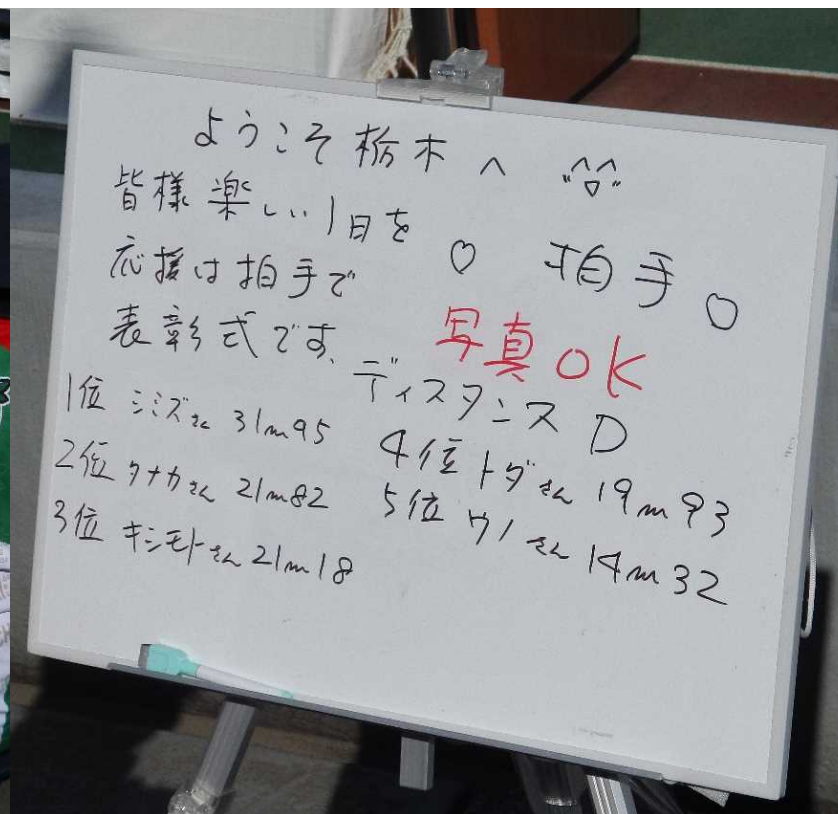 ようこそ栃木へ
皆様楽しい1日を
応援は拍手で ♡ 拍手 ♡
表彰式です、 写真OK
ディスタンス D
1位 シミズさん 31m95
2位 タナカさん 21m82
3位 キシモトさん 21m18
4位 トダさん 19m93
5位 ウノさん 14m32